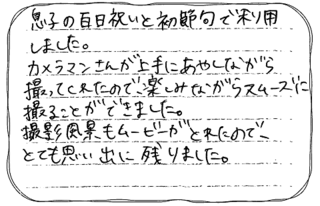 息子の百日祝いと初節句で利用
しました。
カメラマンさんが上手にあやしながら
撮ってくれたので楽しみながらスムーズに
撮ることができました。
撮影風景もムービーがとれたので、
とても思い出に残りました。